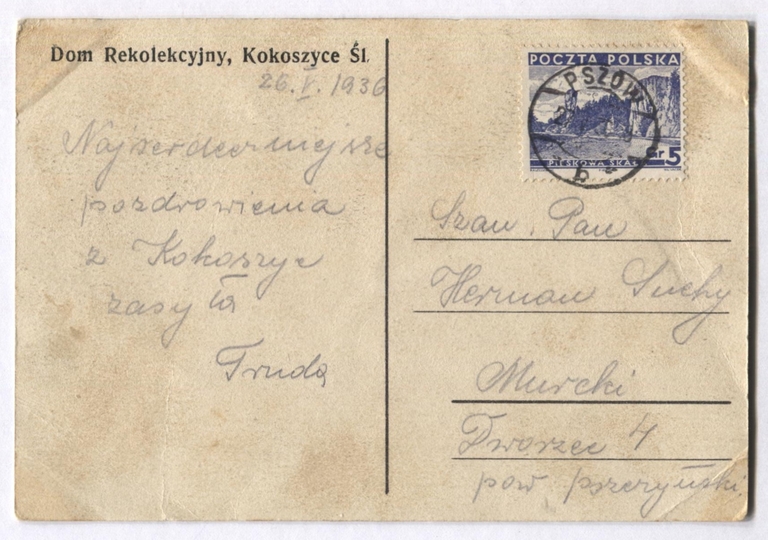 Dom Rekolekcyjny, Kokoszyce Śl.
26. V. 1936
Najserdeczniejsze
pozdrowienia
z Kokoszyc
zasyła
Truda
POCZTA POLSKA
PIESKOWA SKAŁA
Gr 5
PSZÓW
b
Szan. Pan
Herman Suchy
Murcki
Dworzec 4
pow. pszczyński.